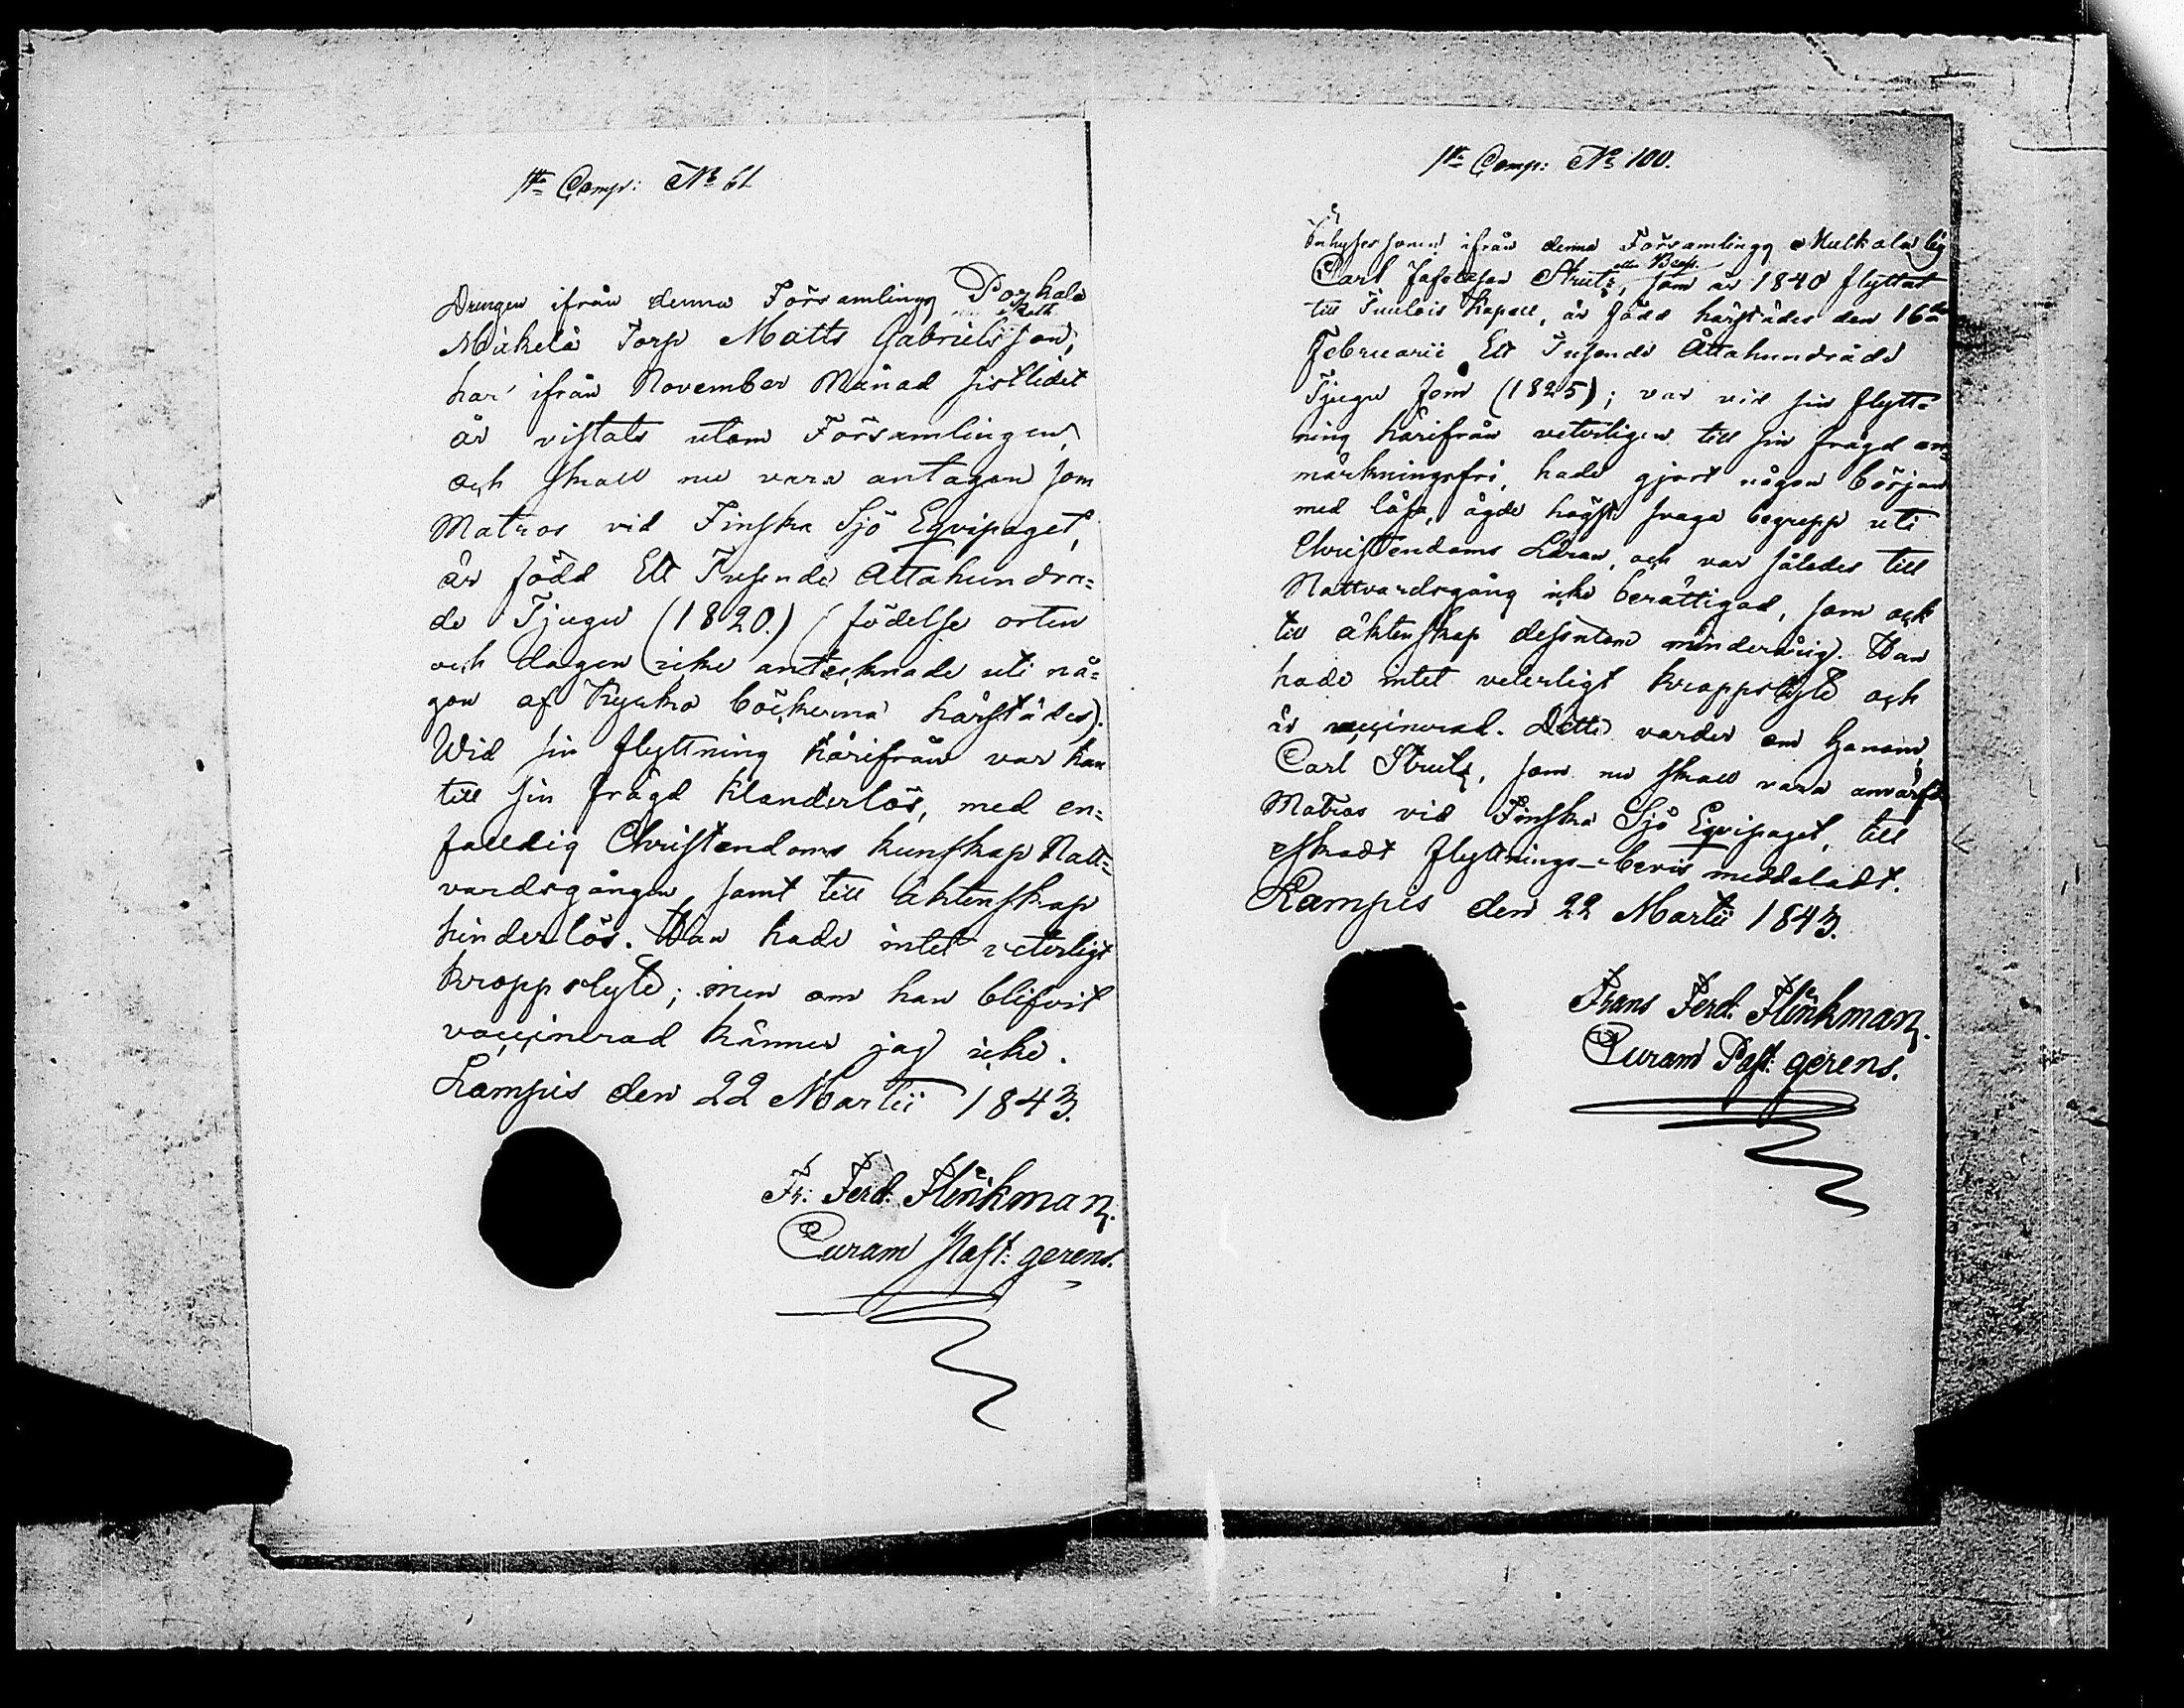 1ste Comp: No 61
Drengen ifrån denna Församlings Porkala
Mäkelä Torp Matts Gabrielsson,
har ifrån November Månad sistledit
år vistats utom Församlingen,
och skall nu vara antagen som
Matros vid Finska Sjö Eqvipaget,
är född Ett Tusende Åttahundra=
de Tjugu (1820.) (födelse orten
och dagen icke antecknade uti nå=
gon af Kyrko böckerna härstädes).
Wid sin flyttning härifrån var han
till sin frägd klanderlös, med en=
faldig Christendoms kunskap Natt=
vardsgången samt till äktenskap
hinderlös. Han hade intet veterligt
kroppslyte; men om han blifvit
vaccinerad känner jag icke.
Lampis den 22 Martii 1843.
Fr. Ferd. Flinkman.
Curam Past: gerens.
1ste Comp: No 100.
Inhyses sonen ifrån denna Församlings by
eller Beck.
Carl Struts, som år 1840 flyttat
till Tuulois Kapell, är född härstädes den 16de
Februarii Ett Tusende Åttahundrade
Tjugu fem (1825); var vid sin flytt=
ning härifrån veterligen till sin frägd an=
märkningsfri, hade gjort någon början
med läsa, ägde högst svaga begrepp uti
Christendoms Läran, och var således till
Nattvardsgång icke berättigad, som ock
till äktenskap dessutom minderårig. Han
hade intet veterligt kroppslyte och
är vaccinerad. Detta varder om honom,
Carl Struts, som nu skall vara anvärfd
Matros vid Finska Sjö Eqvipaget, till
äskadt flyttnings-bevis meddeladt.
Lampis den 22 Martii 1843.
Frans Ferd. Flinkman.
Curam Past: gerens.